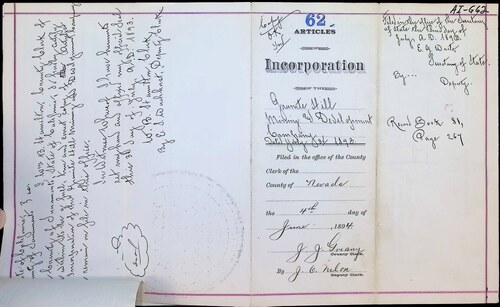 State of California
County of Sacramento } ss.
I, W. B. Hamilton, County Clerk of
County of Sacramento, State of California, do hereby certify
the within to be a full, true and correct copy of the Articles
Incorporation of the Granite Hill Mining & Development Company
now on file in this office.
In Witness Whereof, I have hereunto
set my hand and affixed my official seal
this 1st day of July A.D. 1893.
W. B. Hamilton, Clerk
By Deputy Clerk
Seal
62
ARTICLES
OF
Incorporation
OF THE
Granite Hill
Mining & Development
Company
July 1st 1893.
Filed in the office of the County
Clerk of the
County of Nevada
the 4th day of
June, 1894
J. J.
County Clerk.
By J. C. Nilon
Deputy Clerk.
AI-662
Filed in the Office of the Secretary
of State the third day of
July A.D. 1893.
E. G. Waite
Secretary of State
By
Deputy.
Record Book
Page 267